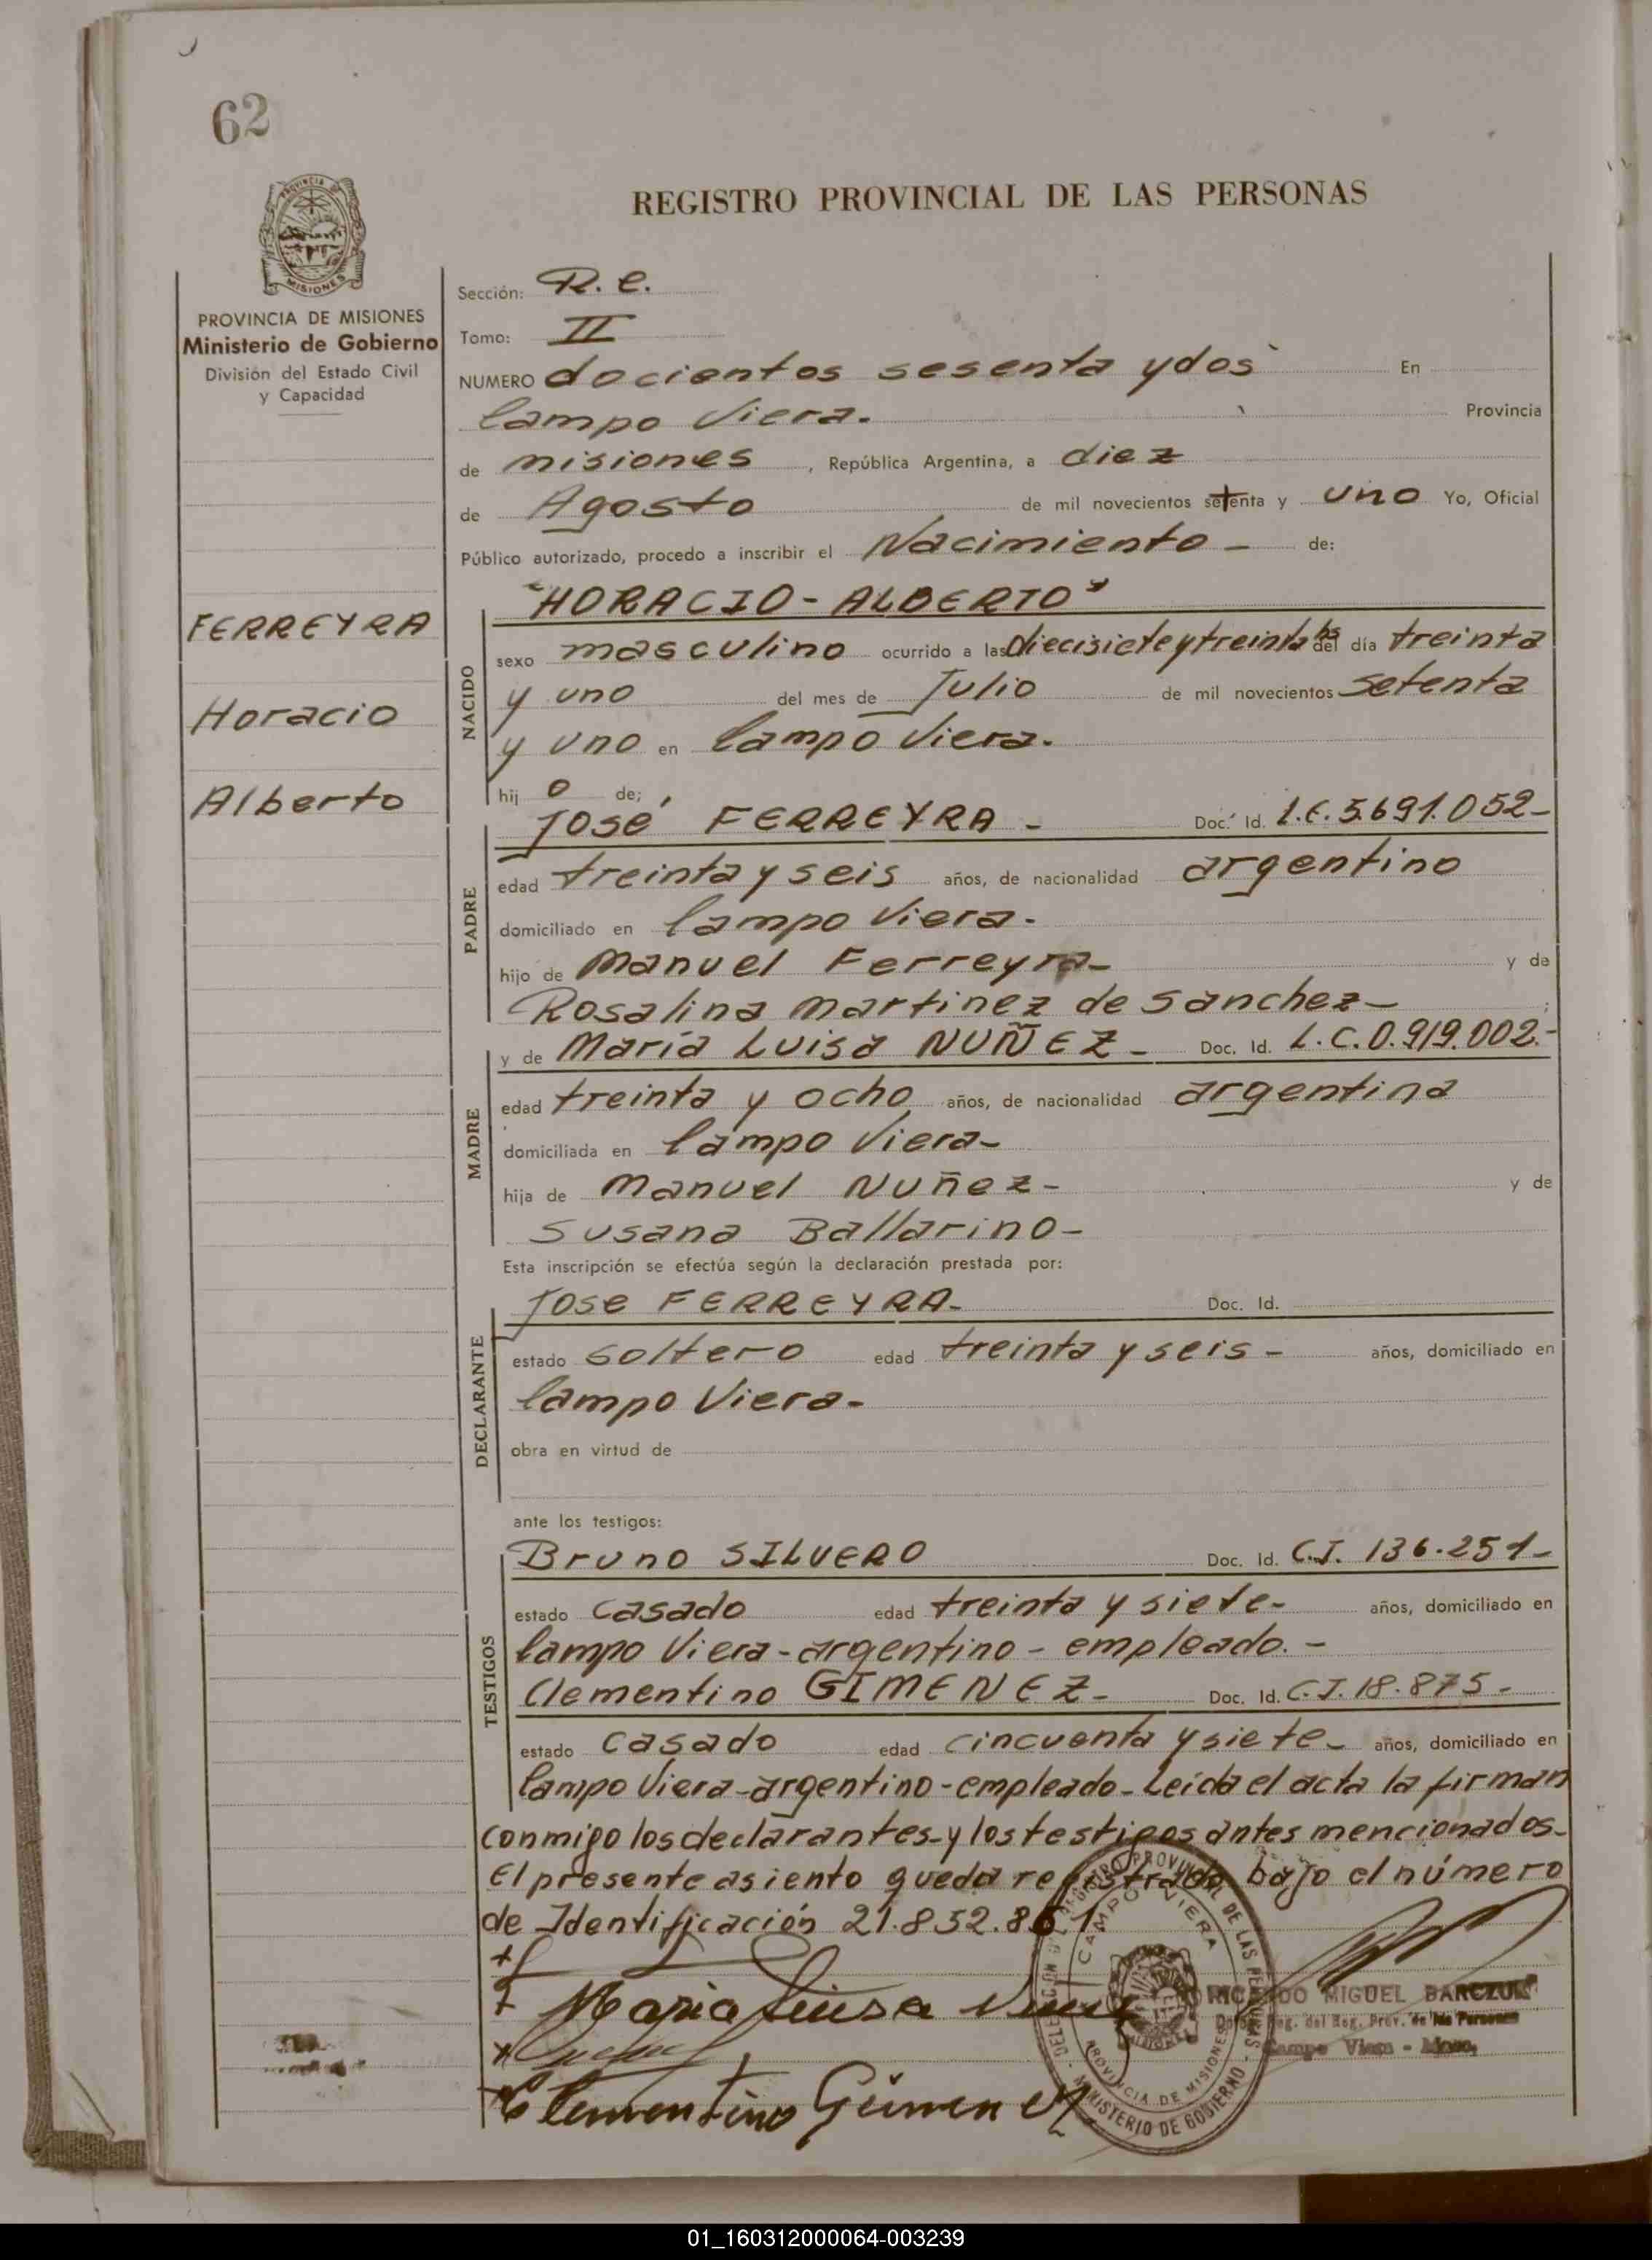 62
REGISTRO PROVINCIAL DE LAS PERSONAS
PROVINCIA DE
MISIONES
PROVINCIA DE MISIONES
Ministerio de Gobierno
División del Estado Civil
y Capacidad
FERREYRA
Horacio
Alberto
Sección: R. C.
Tomo: II
NUMERO docientos sesenta y dos En
Campo Viera. Provincia
de misiones , República Argentina, a diez
de Agosto de mil novecientos setenta y uno Yo, Oficial
Público autorizado, procedo a inscribir el Nacimiento - de:
"HORACIO - ALBERTO"
NACIDO
sexo masculino ocurrido a las diecisiete y treinta hs del día treinta
y uno del mes de Julio de mil novecientos setenta
y uno en Campo Viera.
hij o de;
PADRE
José FERREYRA - Doc. Id. L.E. 5.691.052-
edad treinta y seis años, de nacionalidad argentino
domiciliado en Campo Viera.
hijo de Manuel Ferreyra- y de
Rosalina Martinez de Sanchez- ;
MADRE
y de María Luisa NUÑEZ - Doc. Id. L.C. 0.919.002.-
edad treinta y ocho años, de nacionalidad argentina
domiciliada en Campo Viera-
hija de Manuel Nuñez- y de
Susana Ballarino-
Esta inscripción se efectúa según la declaración prestada por:
DECLARANTE
Jose FERREYRA- Doc. Id.
estado soltero edad treinta y seis - años, domiciliado en
Campo Viera-
obra en virtud de
ante los testigos:
TESTIGOS
Bruno SILVERO Doc. Id. C.I. 136.251-
estado casado edad treinta y siete- años, domiciliado en
Campo Viera-argentino-empleado.-
Clementino GIMENEZ- Doc. Id. C.I. 18.875-
estado casado edad cincuenta y siete- años, domiciliado en
Campo Viera-argentino-empleado-Leida el acta la firman
conmigo los declarantes-y los testigos antes mencionados-
El presente asiento queda registrado bajo el número
de Identificación 21.852.861
Maria Luisa
Clementino Gimenez
DELEGACION DEL REGISTRO PROVINCIAL DE LAS PERSONAS - MINISTERIO DE GOBIERNO -
CAMPO VIERA
PROVINCIA DE MISIONES
RICARDO MIGUEL BARCZUK
Reg. del Reg. Prov. de las Personas
Campo Viera - Mnes.
01_160312000064-003239